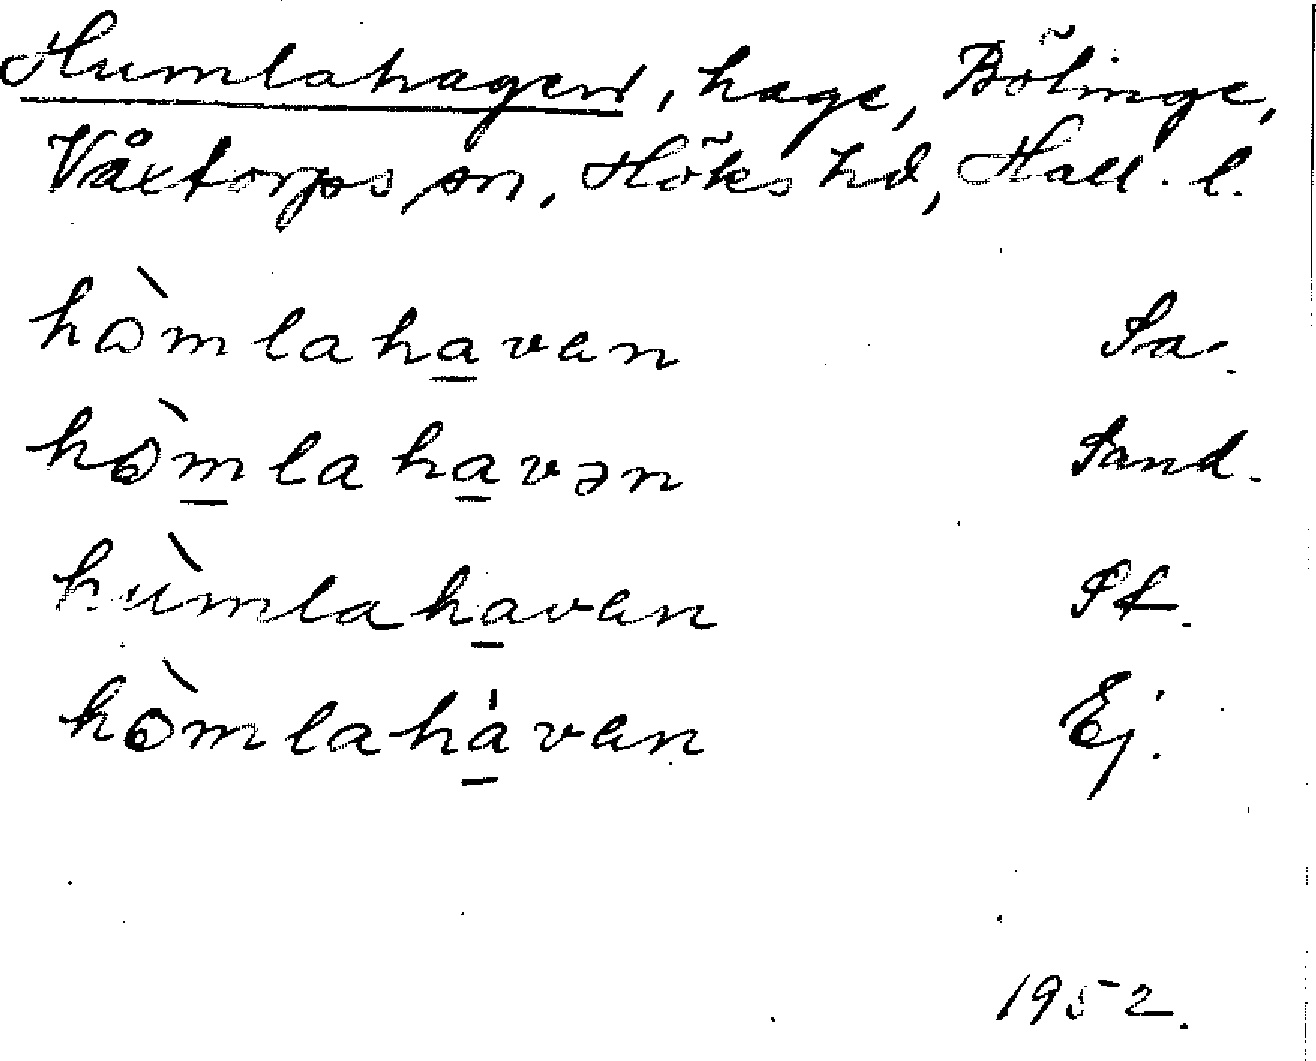 Humlahagen, hage, Bölinge,
Våxtorps sn, Höks hd, Hall. l.
hòmlahavan Sa.
hòmlahavən Sand.
hùmlahavan Pf.
hòmlahàvan Ej.
1952.